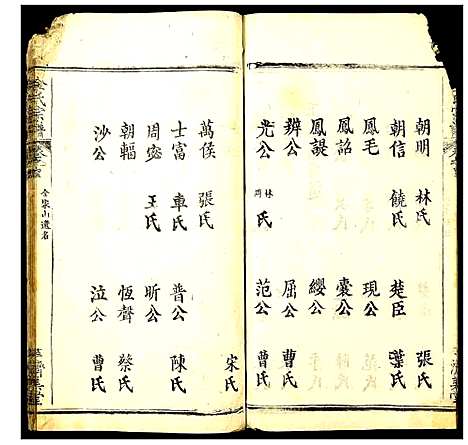 朝明 林氏 張氏
朝信 饒氏 楚臣 葉氏
鳳毛 現公
鳳詔 囊公
鳳諟 纓公
辨公 屈公 曹氏
光公 林 周 氏 范公 曹氏
宋氏
萬侯 張氏
士富 車氏 普公 陳氏
周宓 王氏 昕公
朝輻 恆聲 蔡氏
沙公 泣公 曹氏
氏宗譜
義堂